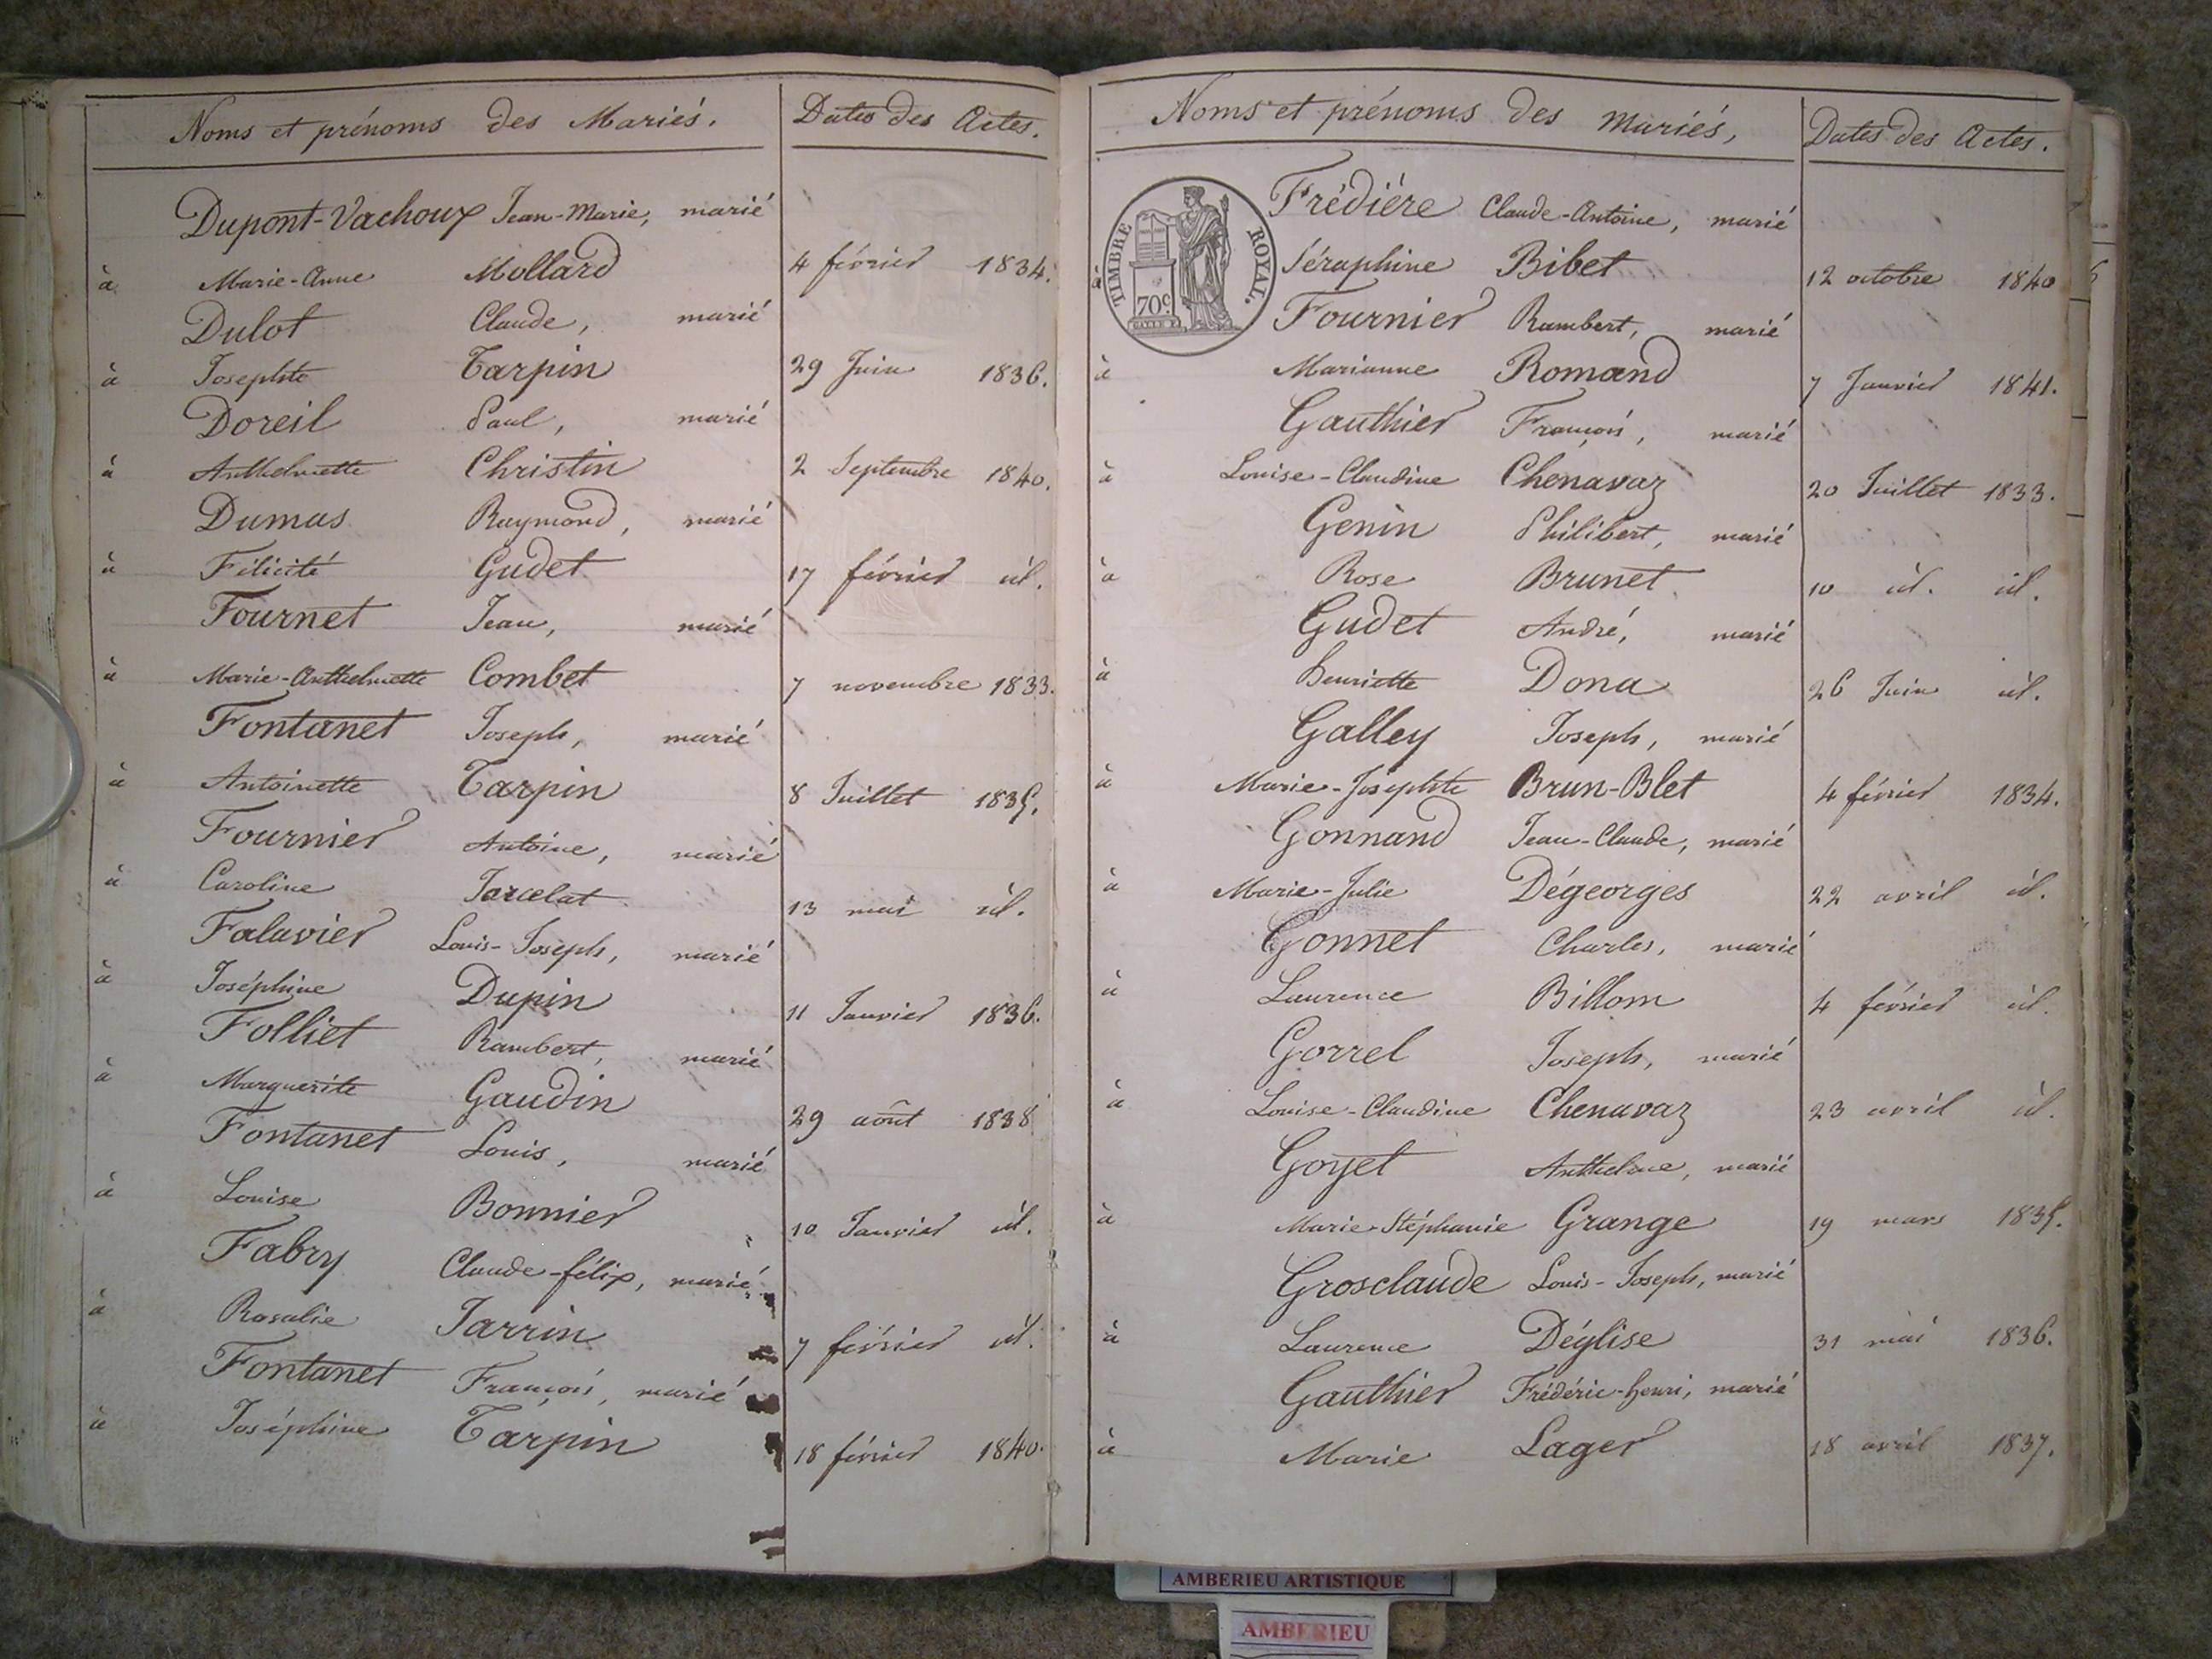 Noms et prénoms des Mariés. Dates des Actes.
Dupont-Vachoux Jean-Marie, marié
à Marie-Anne Mollard 4 février 1834.
Dulot Claude, marié
à Josephte Tarpin 29 Juin 1836.
Doreil Paul, marié
à Anthelmette Christin 2 Septembre 1840.
Dumas Raymond, marié
à Félicité Gudet 17 février id.
Fournet Jean, marié
à Marie-Anthelmette Combet 7 novembre 1833.
Fontanet Joseph, marié
à Antoinette Tarpin 8 Juillet 1835.
Fournier Antoine, marié
à Caroline 13 mai id.
Falavier Louis-Joseph, marié
à Joséphine Dupin 11 Janvier 1836.
Folliet Rambert, marié
à Marguerite Gaudin 29 août 1838
Fontanet Louis, marié
à Louise Bonnier 10 Janvier id.
Fabry Claude-félix, marié
à Rosalie Jarrin 7 février id.
Fontanet François, marié
à Joséphine Tarpin 18 février 1840.
Noms et prénoms des Mariés, Dates des Actes.
TIMBRE ROYAL.
70c.
Frédiére Claude-Antoine, marié
à Séraphine Bibet 12 octobre 1840
Fournier Rambert, marié
à Marianne Romand 7 Janvier 1841.
Gauthier François, marié
à Louise-Claudine Chenavaz 20 Juillet 1833.
Genin Philibert, marié
à Rose Brunet 10 id. id.
Gudet André, marié
à henriette Dona 26 Juin id.
Galley Joseph, marié
à Marie-Josephte Brun-Blet 4 février 1834.
Gonnand Jean-Claude, marié
à Marie-Julie Dégeorges 22 avril id.
Gonnet Charles, marié
à Laurence Billom 4 février id.
Gorrel Joseph, marié
à Louise-Claudine Chenavaz 23 avril id.
Goyet Anthelme, marié
à Marie-Stéphanie Grange 19 mars 1835.
Grosclaude Louis-Joseph, marié
à Laurence Déglise 31 mai 1836.
Gauthier Frédéric-henri, marié
à Marie Lager 18 avril 1837.
AMBERIEU ARTISTIQUE
AMBERIEU